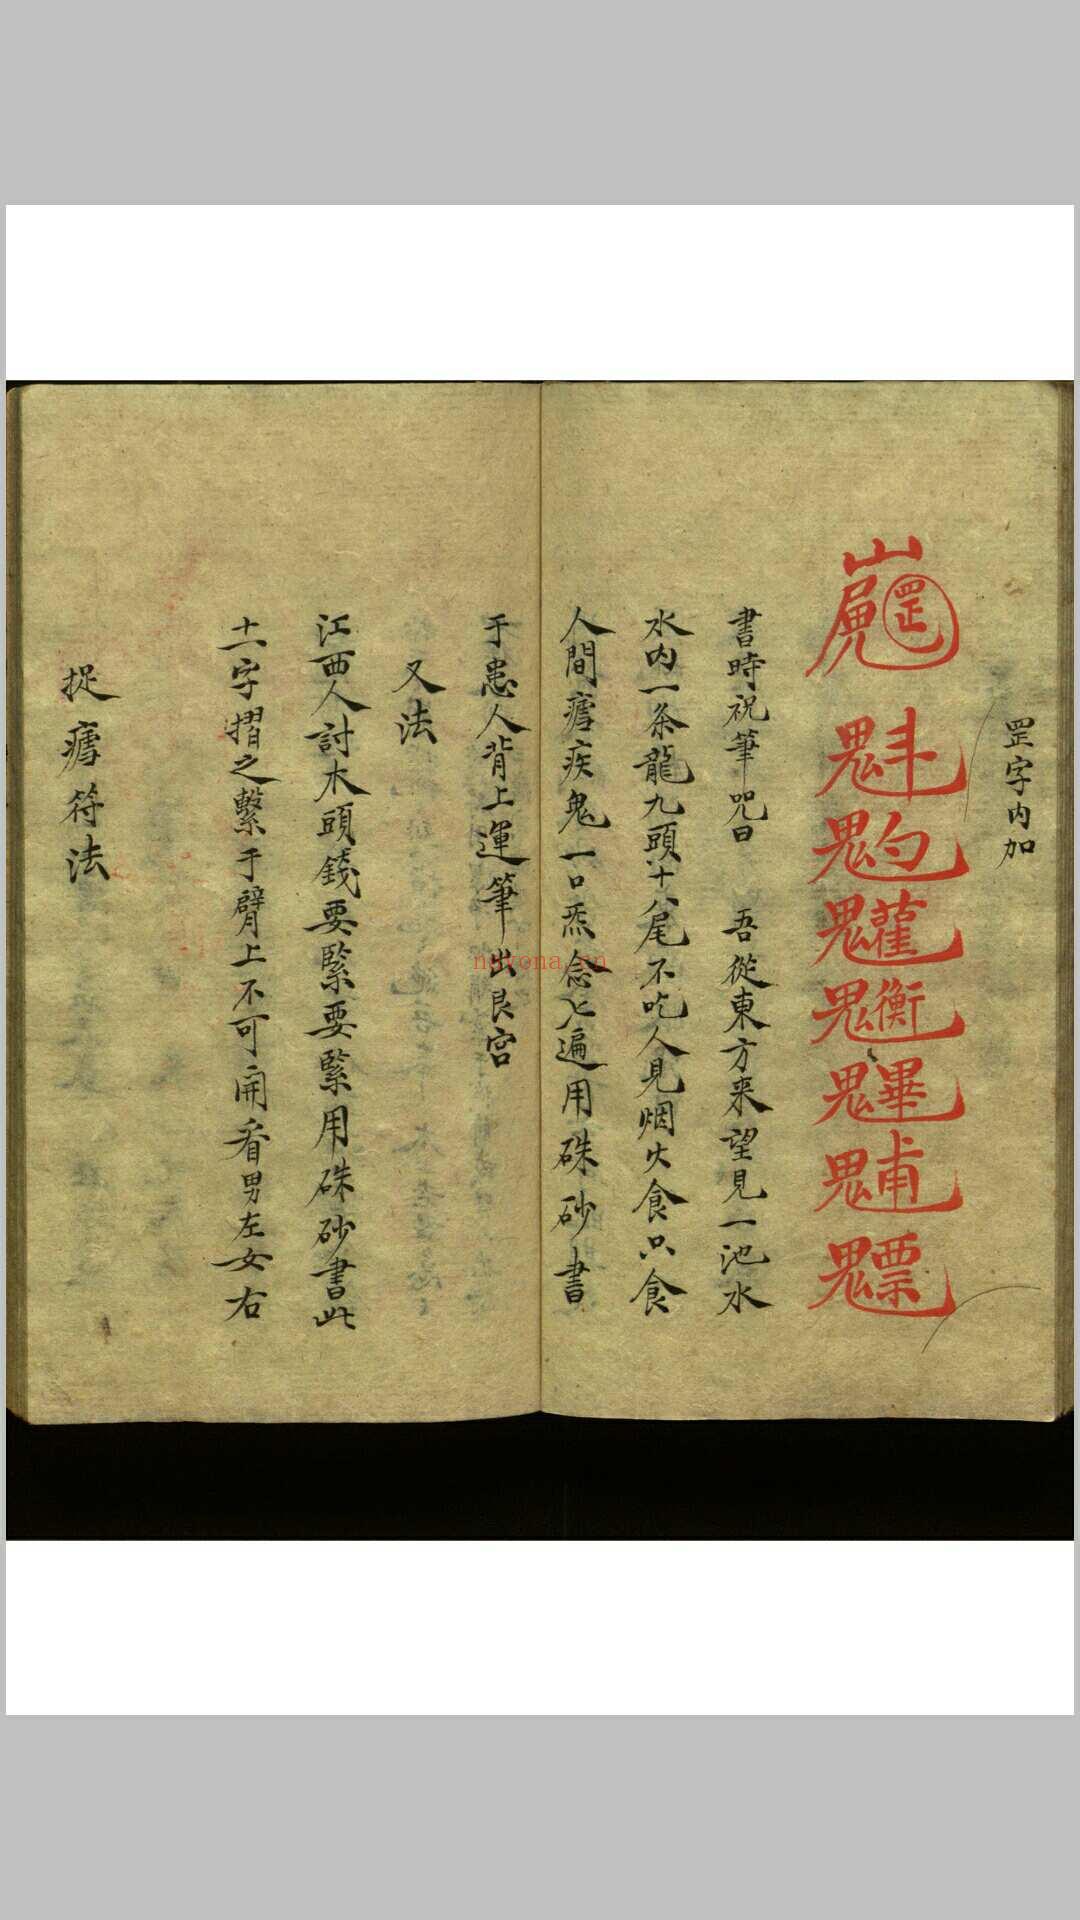 罡字内加
罡
魁䰢䰧䰣魓
書時祝筆咒曰 吾從東方来望見一池水
水内一条龍九頭十八尾不吃人見烟火食只食
人間瘧疾鬼一口炁念七遍用硃砂書
于患人背上運筆出艮宮
又法
江西人討木頭錢要緊要緊用硃砂書此
十一字摺之繫于臂上不可開看男左女右
捉瘧符法
nayona.cn